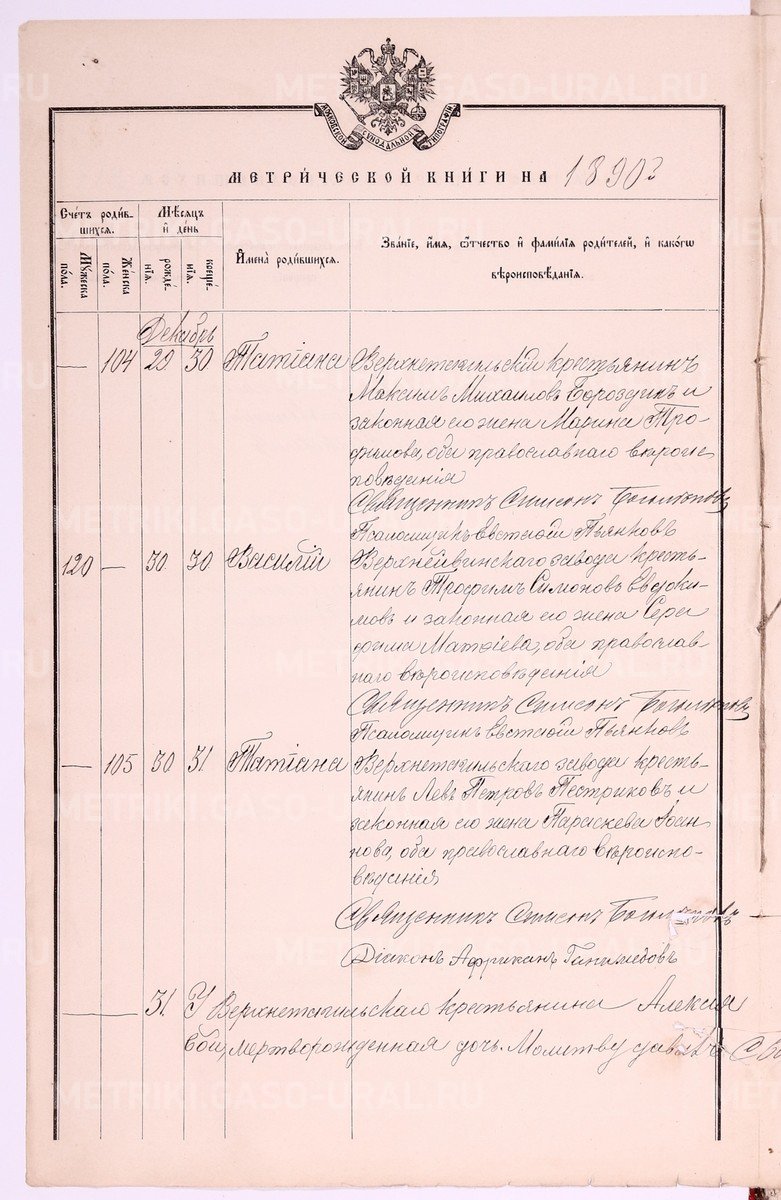 МОСКОВСКОЙ СѴНОДАЛЬНОЙ ТИПОГРАФІИ
МЕТРИ́ЧЕСКОЙ КНИ́ГИ НА 1890 г
Сче́тъ роди́вшихся.
Мꙋ́жеска пола.
Же́нска пола.
Мѣ́сяцъ и҆ де́нь
рожде́нїѧ.
креще́нїѧ.
И҆мена̀ роди́вшихсѧ.
Зва́нїе, и҆́мѧ, ѻ҆́тчество и҆ фами́лїѧ роди́телей, и҆ како́гѡ вѣроисповѣ́данїѧ.
Декабрь
— 104 29 30 Татіана Верхнетагильскій крестьянинъ
Максимъ Михаиловъ Бороздинъ и
законная его жена Марина Тро-
фимова, оба православнаго вѣроис-
повѣданія
Священникъ Симеонъ
Псаломщикъ Евстафій Пьянковъ
120 — 30 30 Василій Верхнейвинскаго завода кресть-
янинъ Трофимъ Симоновъ Евдоки-
мовъ и законная его жена Сера
фима Матѳіева, оба православ-
наго вѣроисповѣданія
Священникъ Симеонъ
Псаломщикъ Евстафій Пьянковъ
— 105 30 31 Татіана Верхнетагильскаго завода кресть-
янинъ Левъ Петровъ Пестриковъ и
законная его жена Параскева Іоан
нова, оба православнаго вѣроиспо-
вѣданія
Священникъ Симеонъ
Діаконъ Африканъ Ганимедовъ
— 31 У Верхнетагильскаго крестьянина Алексія
мертворожденная дочь. Молитву давалъ
METRIKI.GASO-URAL.RU